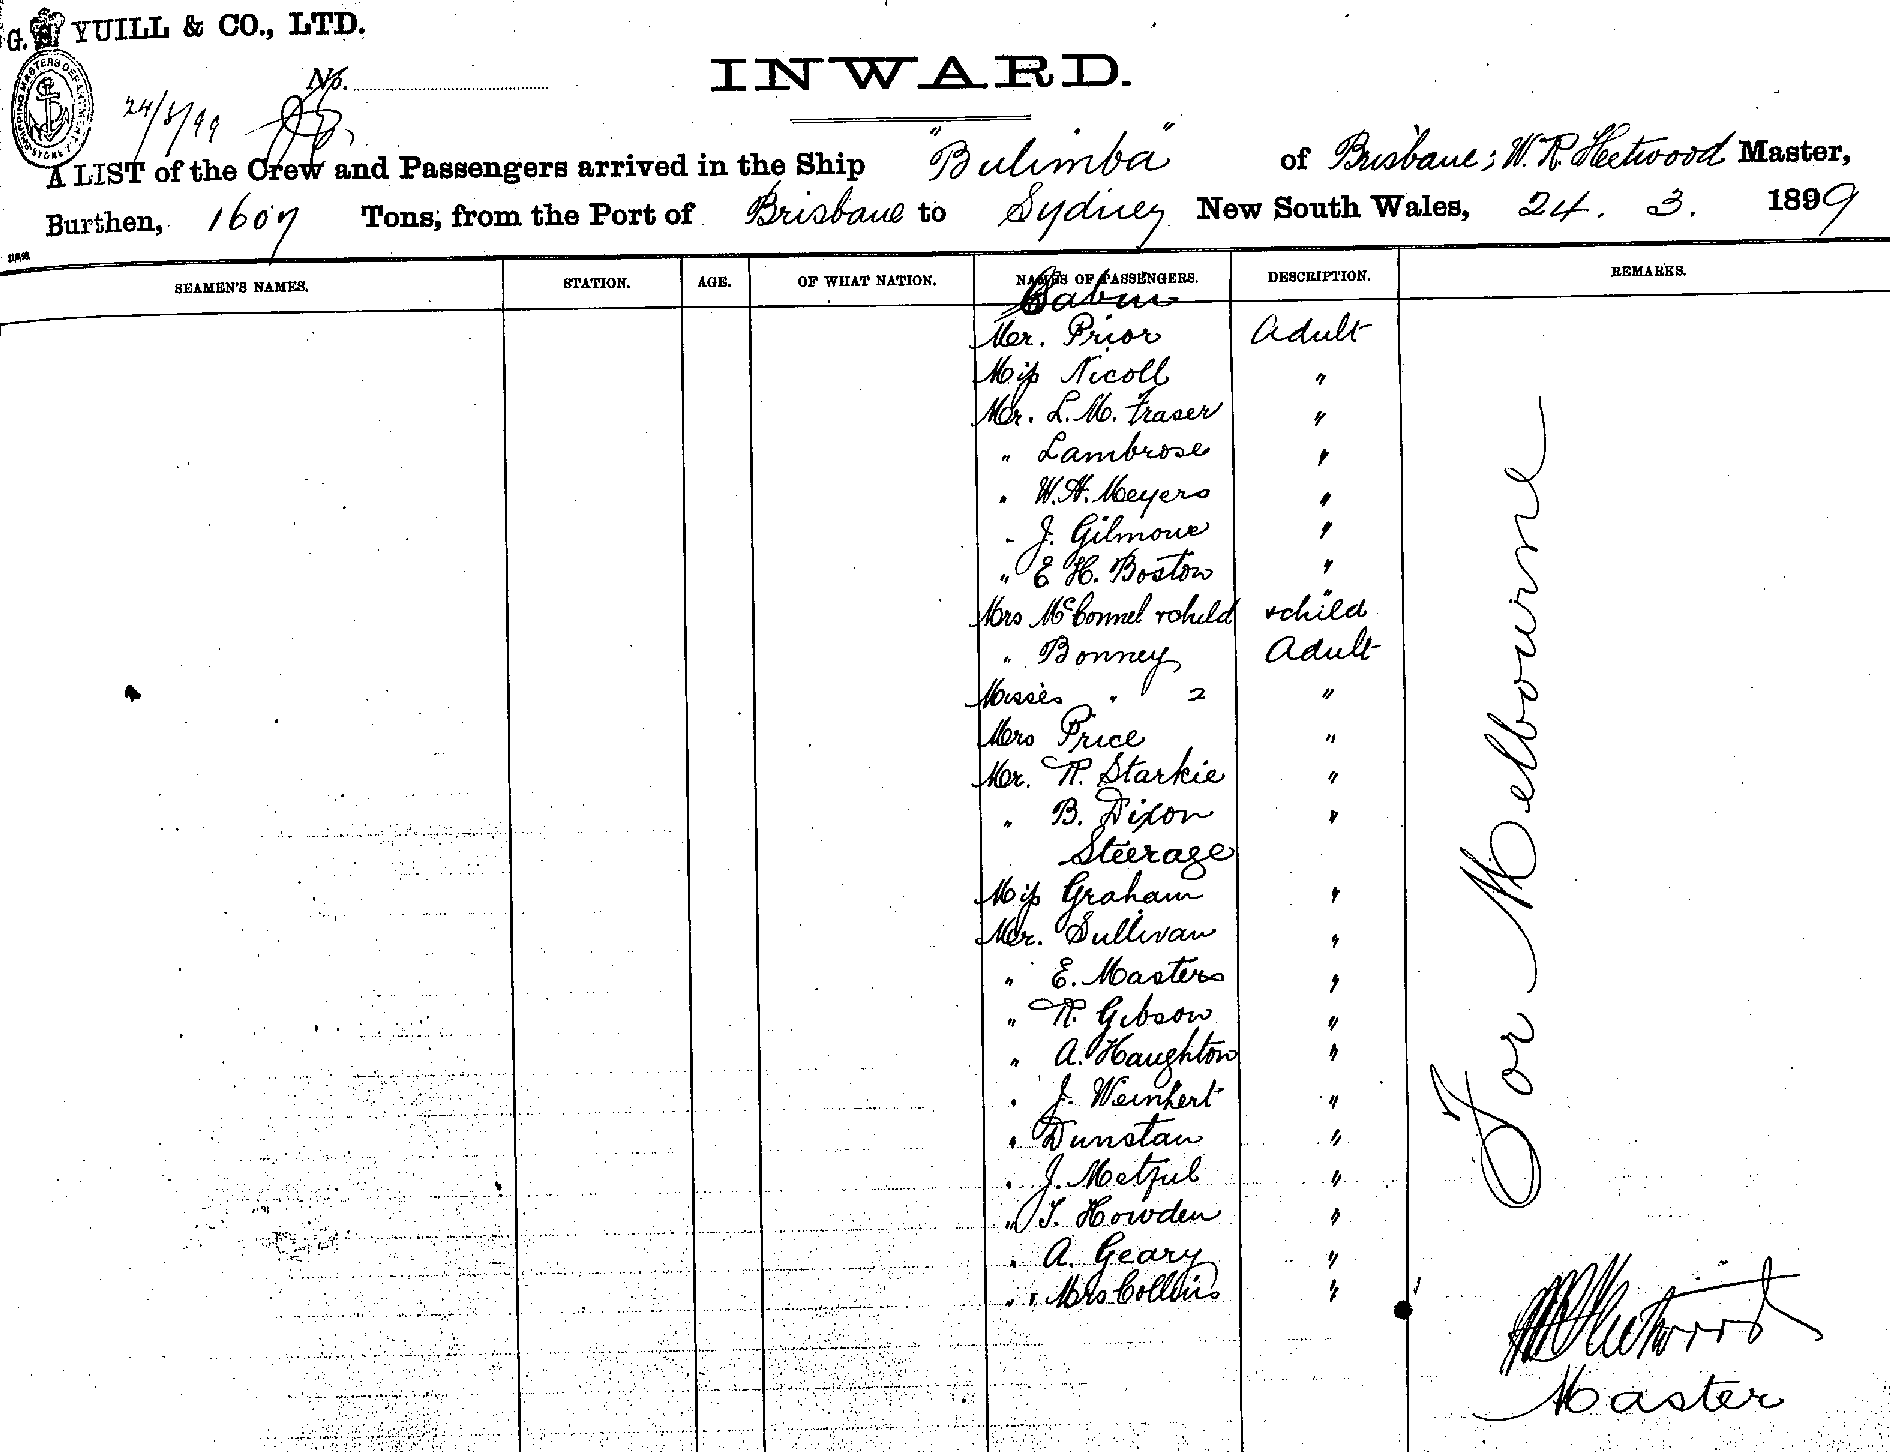 G. S. YUILL & CO., LTD.
No.
INWARD.
24/3/99
A LIST of the Crew and Passengers arrived in the Ship "Bulimba" of Brisbane; W. R. Fleetwood Master,
Burthen, 1607 Tons, from the Port of Brisbane to Sydney New South Wales, 24. 3. 1899
SEAMEN'S NAMES. STATION. AGE. OF WHAT NATION. NAMES OF PASSENGERS. DESCRIPTION. REMARKS.
Cabin
Mr. Prior Adult
Miss Nicoll "
Mr. L. M. Fraser "
" Lambrose "
" W. H. Meyers "
" J. Gilmour "
" E H. Boston "
Mrs McConnel + child " + child
" Bonney Adult
Misses " 2 "
Mrs Price "
Mr. R. Starkie "
" B. Dixon "
Steerage
Miss Graham "
Mr. Sullivan "
" E. Masters "
" R. Gibson "
" A. Haughton "
" J. Weinhert "
" Dunstan "
" J. "
" T. Howden "
" A. Geary "
" " Mrs Collins "
For Melbourne
W R Fleetwood
Master